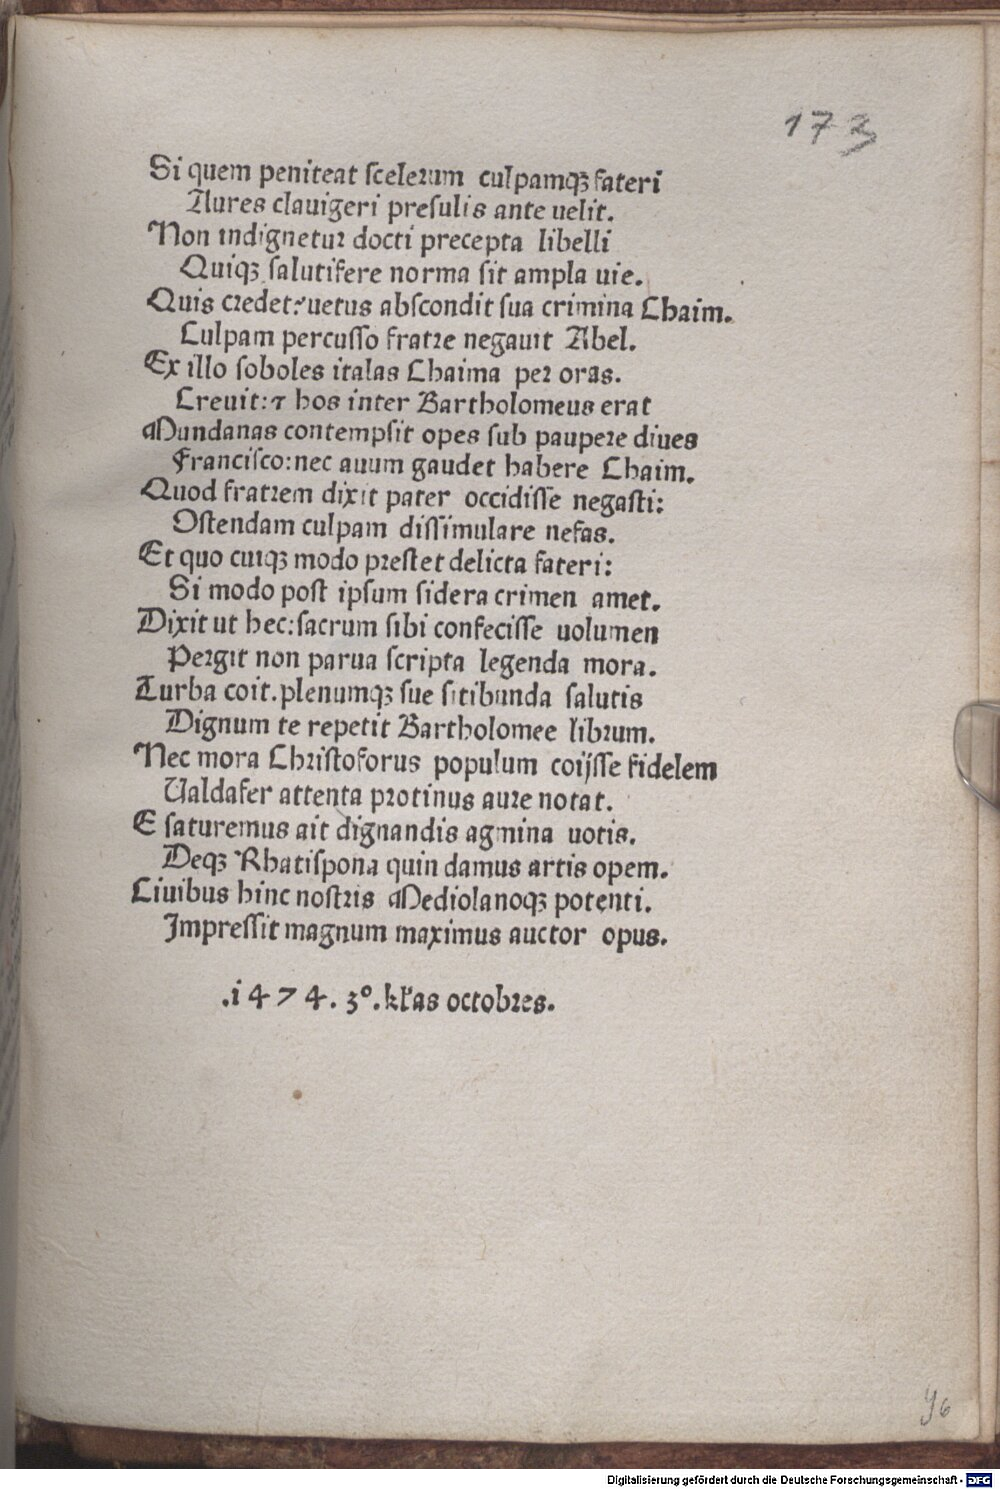 173
Si quem peniteat scelerum culpamqꝫ fateri
Aures clauigeri presulis ante uelit.
Non indignetur docti precepta libelli
Quiqꝫ salutifere norma sit ampla uie.
Quis credet? uetus abscondit sua crimina Chaim.
Culpam percusso fratre negauit Abel.
Ex illo soboles italas Chaima per oras.
Creuit: ⁊ hos inter Bartholomeus erat
Mundanas contempsit opes sub paupere diues
Francisco: nec auum gaudet habere Chaim.
Quod fratrem dixit pater occidisse negasti:
Ostendam culpam dissimulare nefas.
Et quo cuiqꝫ modo prestet delicta fateri:
Si modo post ipsum sidera crimen amet.
Dixit ut hec: sacrum sibi confecisse uolumen
Pergit non parua scripta legenda mora.
Turba coit. plenumqꝫ sue sitibunda salutis
Dignum te repetit Bartholomee librum.
Nec mora Christoforus populum coijsse fidelem
Ualdafer attenta protinus aure notat.
E saturemus ait dignandis agmina uotis.
Deqꝫ Rhatispona quin damus artis opem.
Ciuibus hinc nostris Mediolanoqꝫ potenti.
Impressit magnum maximus auctor opus.
.1474. 3º. kl'as octobres.
96
Digitalisierung gefördert durch die Deutsche Forschungsgemeinschaft - DFG